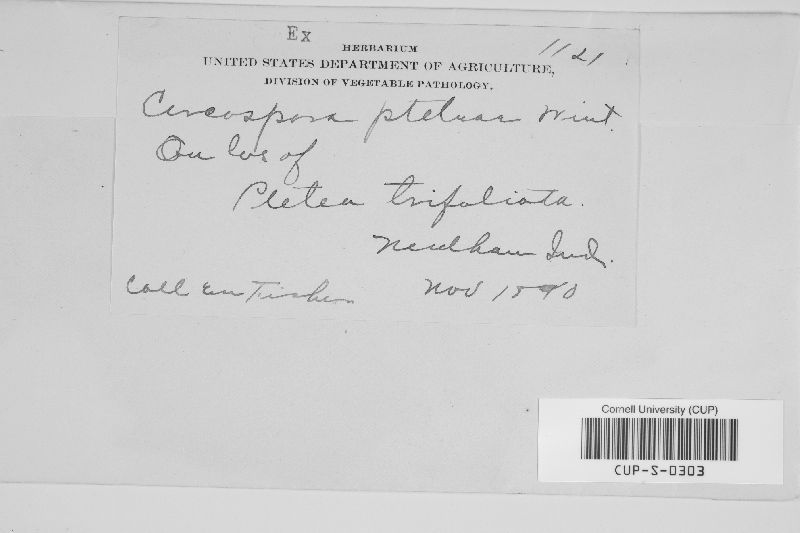 Ex
1121
HERBARIUM
UNITED STATES DEPARTMENT OF AGRICULTURE,
DIVISION OF VEGETABLE PATHOLOGY.
Cercospora pteleae Wint.
On lvs of
Ptelea trifoliata.
Needham Ind.
Coll EM Fisher Nov 1890
Cornell University (CUP)
CUP-S-0303